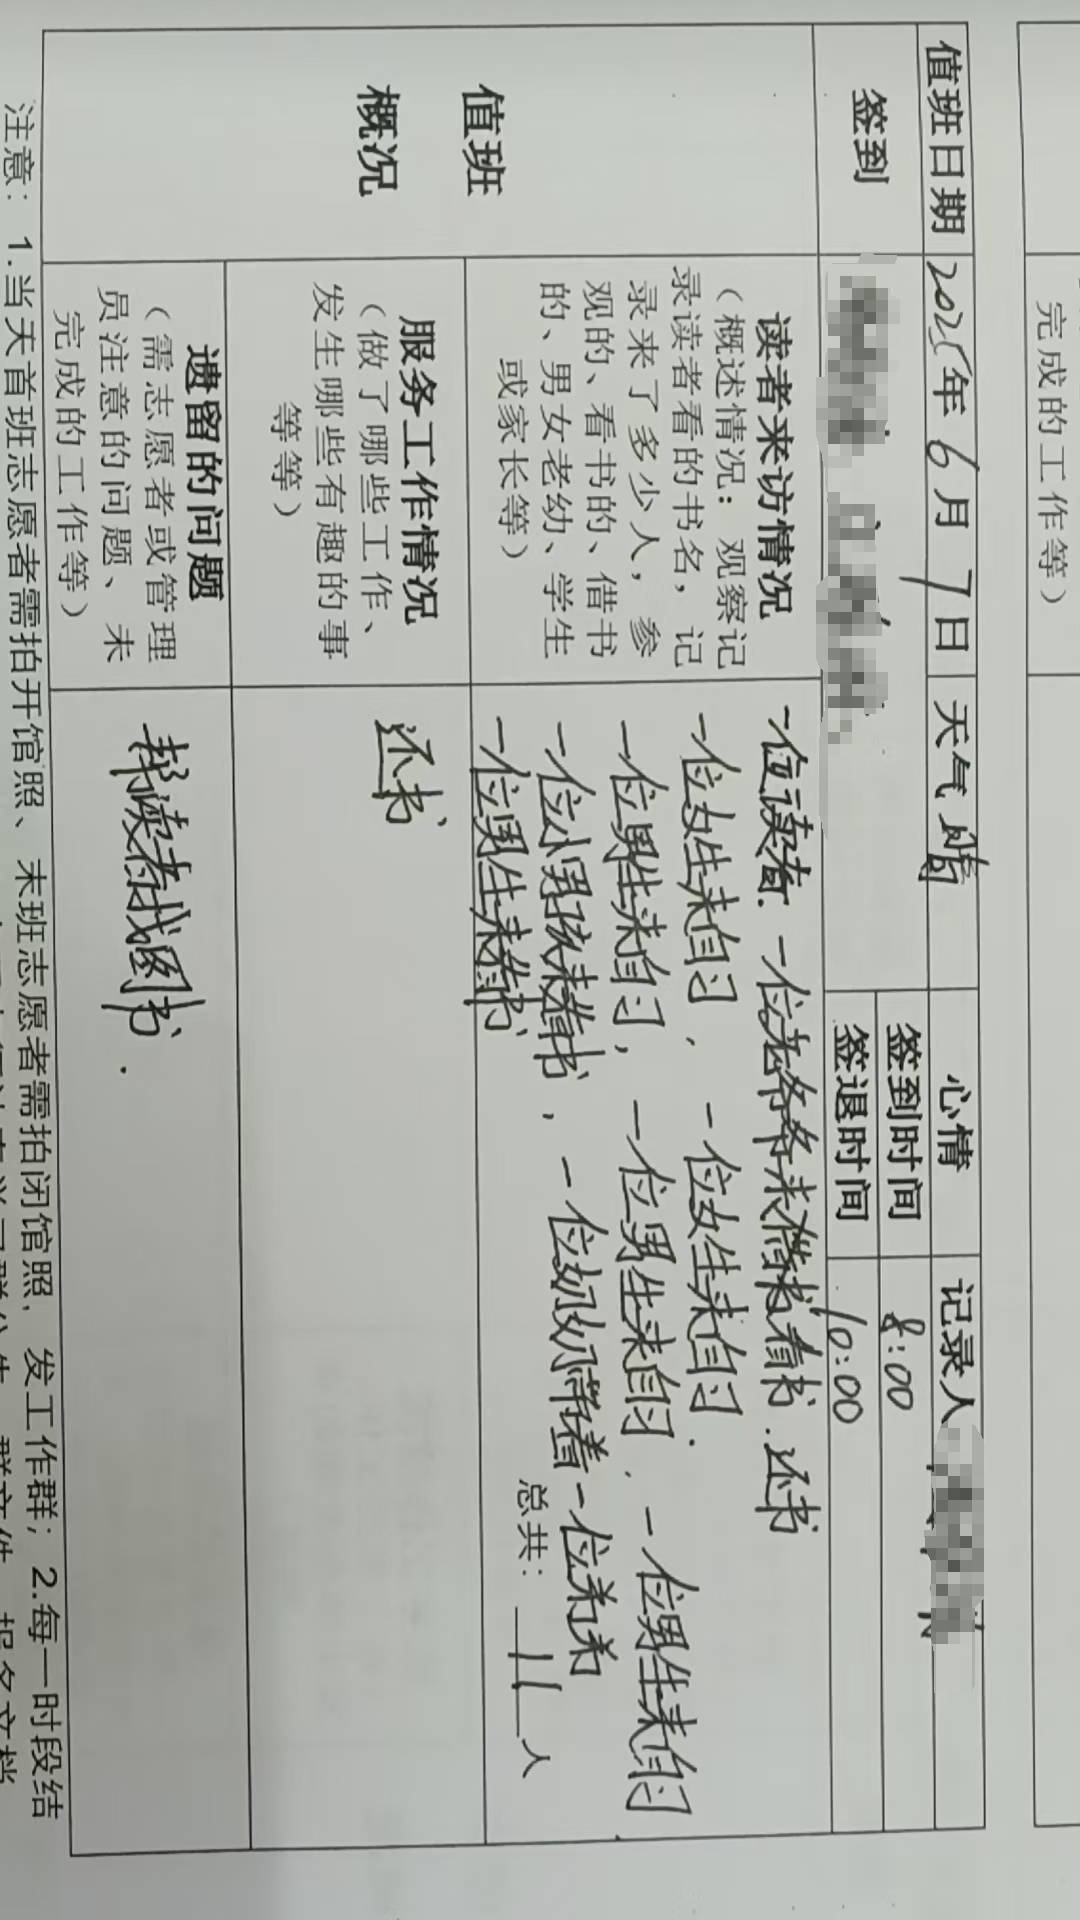 完成的工作等）
值班日期 2025年6月7日 天气 晴 心情 记录人
签到 签到时间 8:00
签退时间 10:00
值班
概况
读者来访情况
（概述情况：观察记
录读者看的书名，记
录来了多少人，参
观的、看书的、借书
的、男女老幼、学生
或家长等）
一位读者. 一位老爷爷来借书看书.还书
一位女生来自习， 一位女生来自习.
一位男生来自习， 一位男生来自习、一位男生来自习
一位小男孩来看书， 一位奶奶带着一位弟弟
一位男生来看书
总共： 11 人
服务工作情况
（做了哪些工作、
发生哪些有趣的事
等等）
还书
遗留的问题
（需志愿者或管理
员注意的问题、未
完成的工作等）
帮读者找图书.
注意：1.当天首班志愿者需拍开馆照、末班志愿者需拍闭馆照，发工作群；2.每一时段结